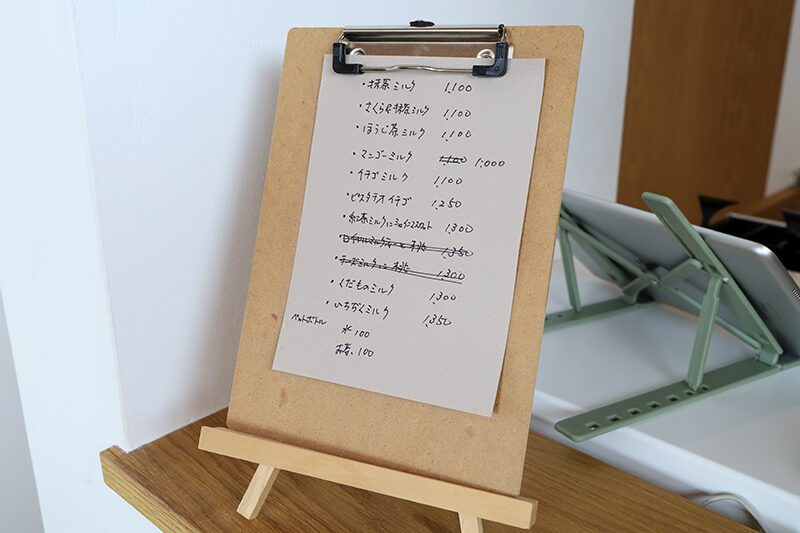 ・抹茶ミルク 1,100
・さくら&抹茶ミルク 1,100
・ほうじ茶ミルク 1,100
・マンゴーミルク 1,100 1,000
・イチゴミルク 1,100
・ピスタチオイチゴ 1,250
・紅茶ミルクにシャインマスカット 1,300
・ロイヤルミルクティーと桃 1,350
・チーズミルクに桃 1,300
・くだものミルク 1,300
・いちぢくミルク 1,350
ペットボトル 水 100
お茶、100